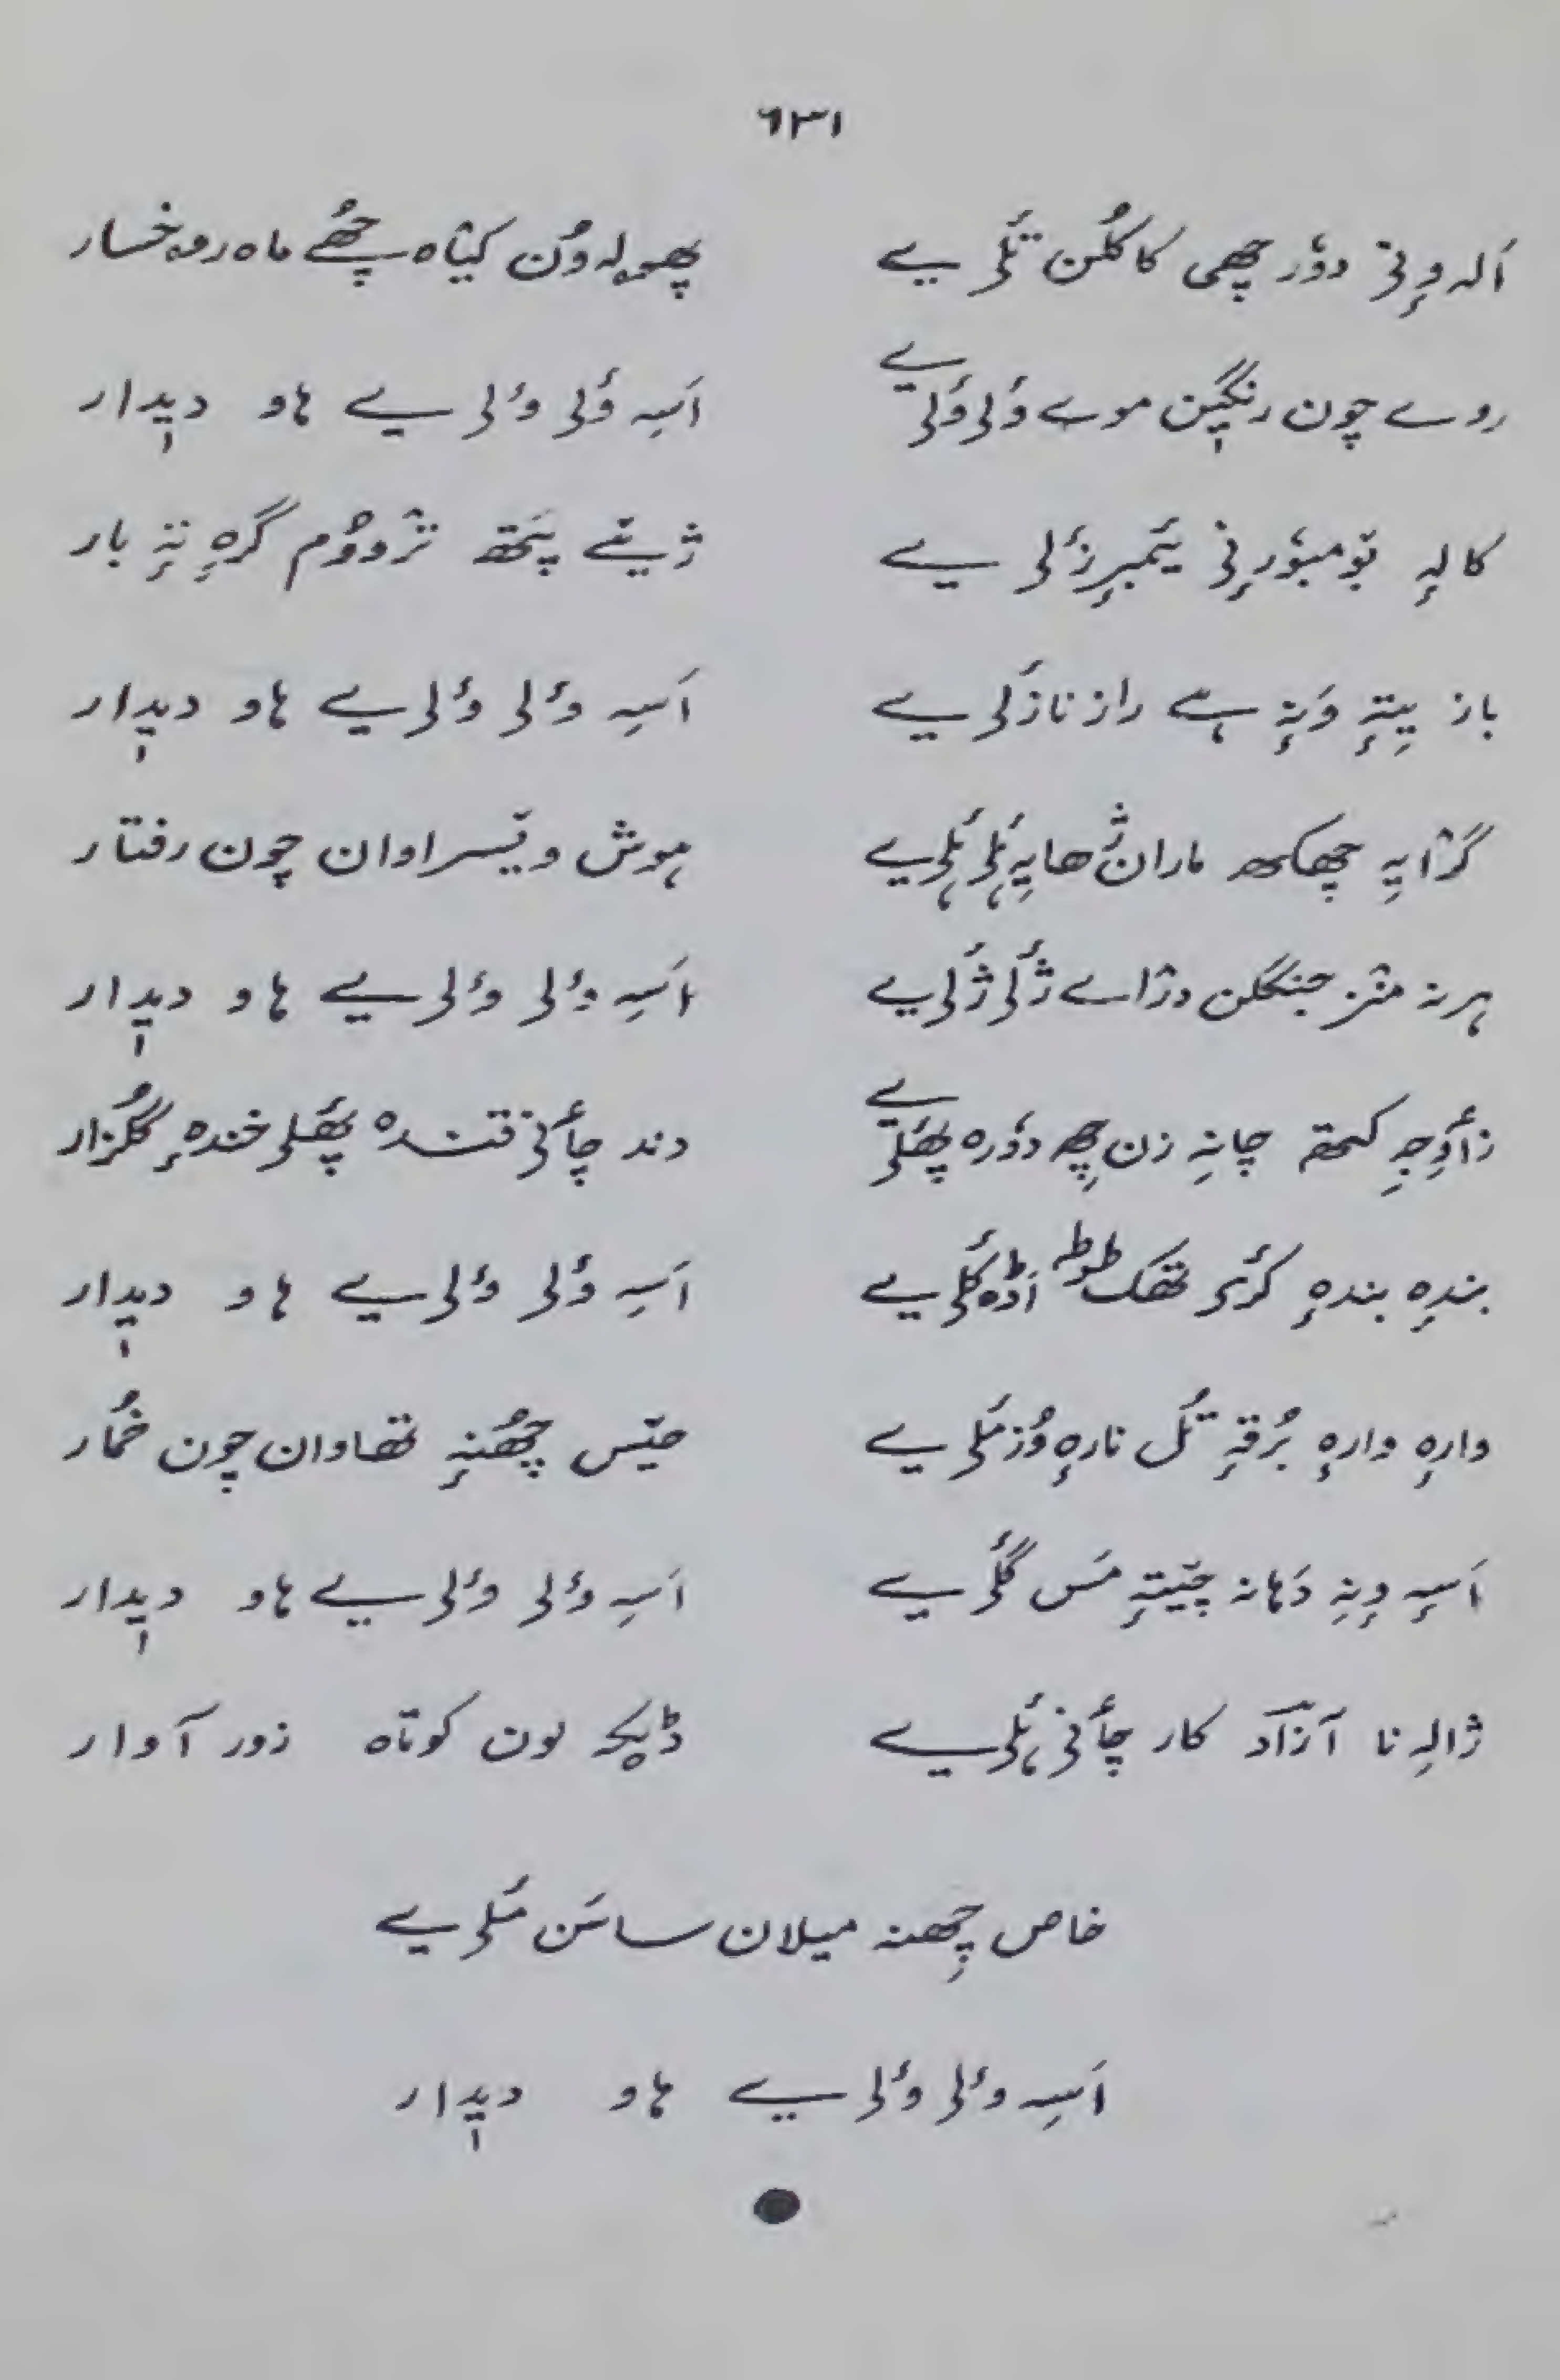 ٦٣١
اَلہ وٕنۍ دوٗر چھی کاکُلن تَلۍ یے پھۄلہ وُن کیٛاہ چھُے ماہ رۄخسار
روے چون رنگیٖن موے وَلۍ وَلۍ یے اَسہِ وَلۍ وٲلۍ یے ہاو دیٖدار
کالہٕ بۄمبوٗرٕنۍ یٔمبرٕزٔلۍ یے ژےٚ پَتھ ترٛووُم گرٕہ تہٕ بار
باز یِتہٕ وَنہٕ ہےٚ راز نازَلۍ یے اَسہِ وٲلۍ وٲلۍ یے ہاو دیٖدار
گژایہِ چھکھ ماران ژھایہِ ۂلۍ ۂلۍ یے ہوش ویٚسراوان چون رفتار
ہرنہ منٛز جنگلن دژاے ژٔلۍ ژٔلۍ یے اَسہِ وٲلۍ وٲلۍ یے ہاو دیٖدار
زٲوِجہِ کمتھ چانہِ زن چھِ دوٗرہ پھَلۍ یے دند چٲنۍ قندہ پھَلۍ خندہٕ گُلزار
بندہٕ بندہٕ کٔرۍ تھک طوطہ اَڈٕ کَلۍ یے اَسہِ وٲلۍ وٲلۍ یے ہاو دیٖدار
وارہٕ وارہٕ بُرقہٕ تُل نارہٕ وُزمَلۍ یے حیٚس چھُنہٕ تھاوان چون خُمار
اَسہِ وٕنہِ دَہانہ چیٚتہٕ مَس گٔلۍ یے اَسہِ وٲلۍ وٲلۍ یے ہاو دیٖدار
ژالہِ نا آزآد کار چٲنۍ ۂلۍ یے ڈیکہٕ لون کوتاہ زور آوار
خاص چھِنہ میلان ساسَن مُلۍ یے
اَسہِ وٲلۍ وٲلۍ یے ہاو دیٖدار